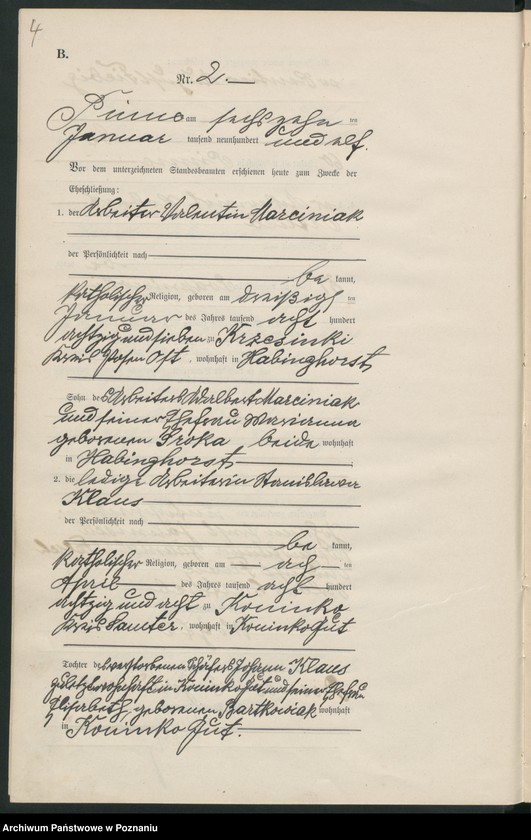 4
B.
Nr. 2.
Pinne am sechszehn ten
Januar tausend neunhundert und elf.
Vor dem unterzeichneten Standesbeamten erschienen heute zum Zwecke der
Eheschließung:
1. der Arbeiter Valentin Marciniak
der Persönlichkeit nach
be kannt,
katholischer Religion, geboren am dreißig ten
Januar des Jahres tausend acht hundert
achtzig und sieben zu Krzesinki
Kreis Posen Ost, wohnhaft in Habinghorst
Sohn des Arbeiters Adalbert Marciniak
und seiner Ehefrau Marianna
geborenen Sroka, beide wohnhaft
in Habinghorst
2. die ledige Arbeiterin Stanislawa
Klaus
der Persönlichkeit nach
be kannt,
katholischer Religion, geboren am ach ten
April des Jahres tausend acht hundert
achtzig und acht zu Koninko
Kreis Samter, wohnhaft in Koninko Gut
Tochter des verstorbenen Schäfers Johann Klaus
zuletzt wohnhaft in Koninko Gut und seiner Ehefrau
Elisabeth geborenen Bartkowiak wohnhaft
in Koninko Gut.
Archiwum Państwowe w Poznaniu